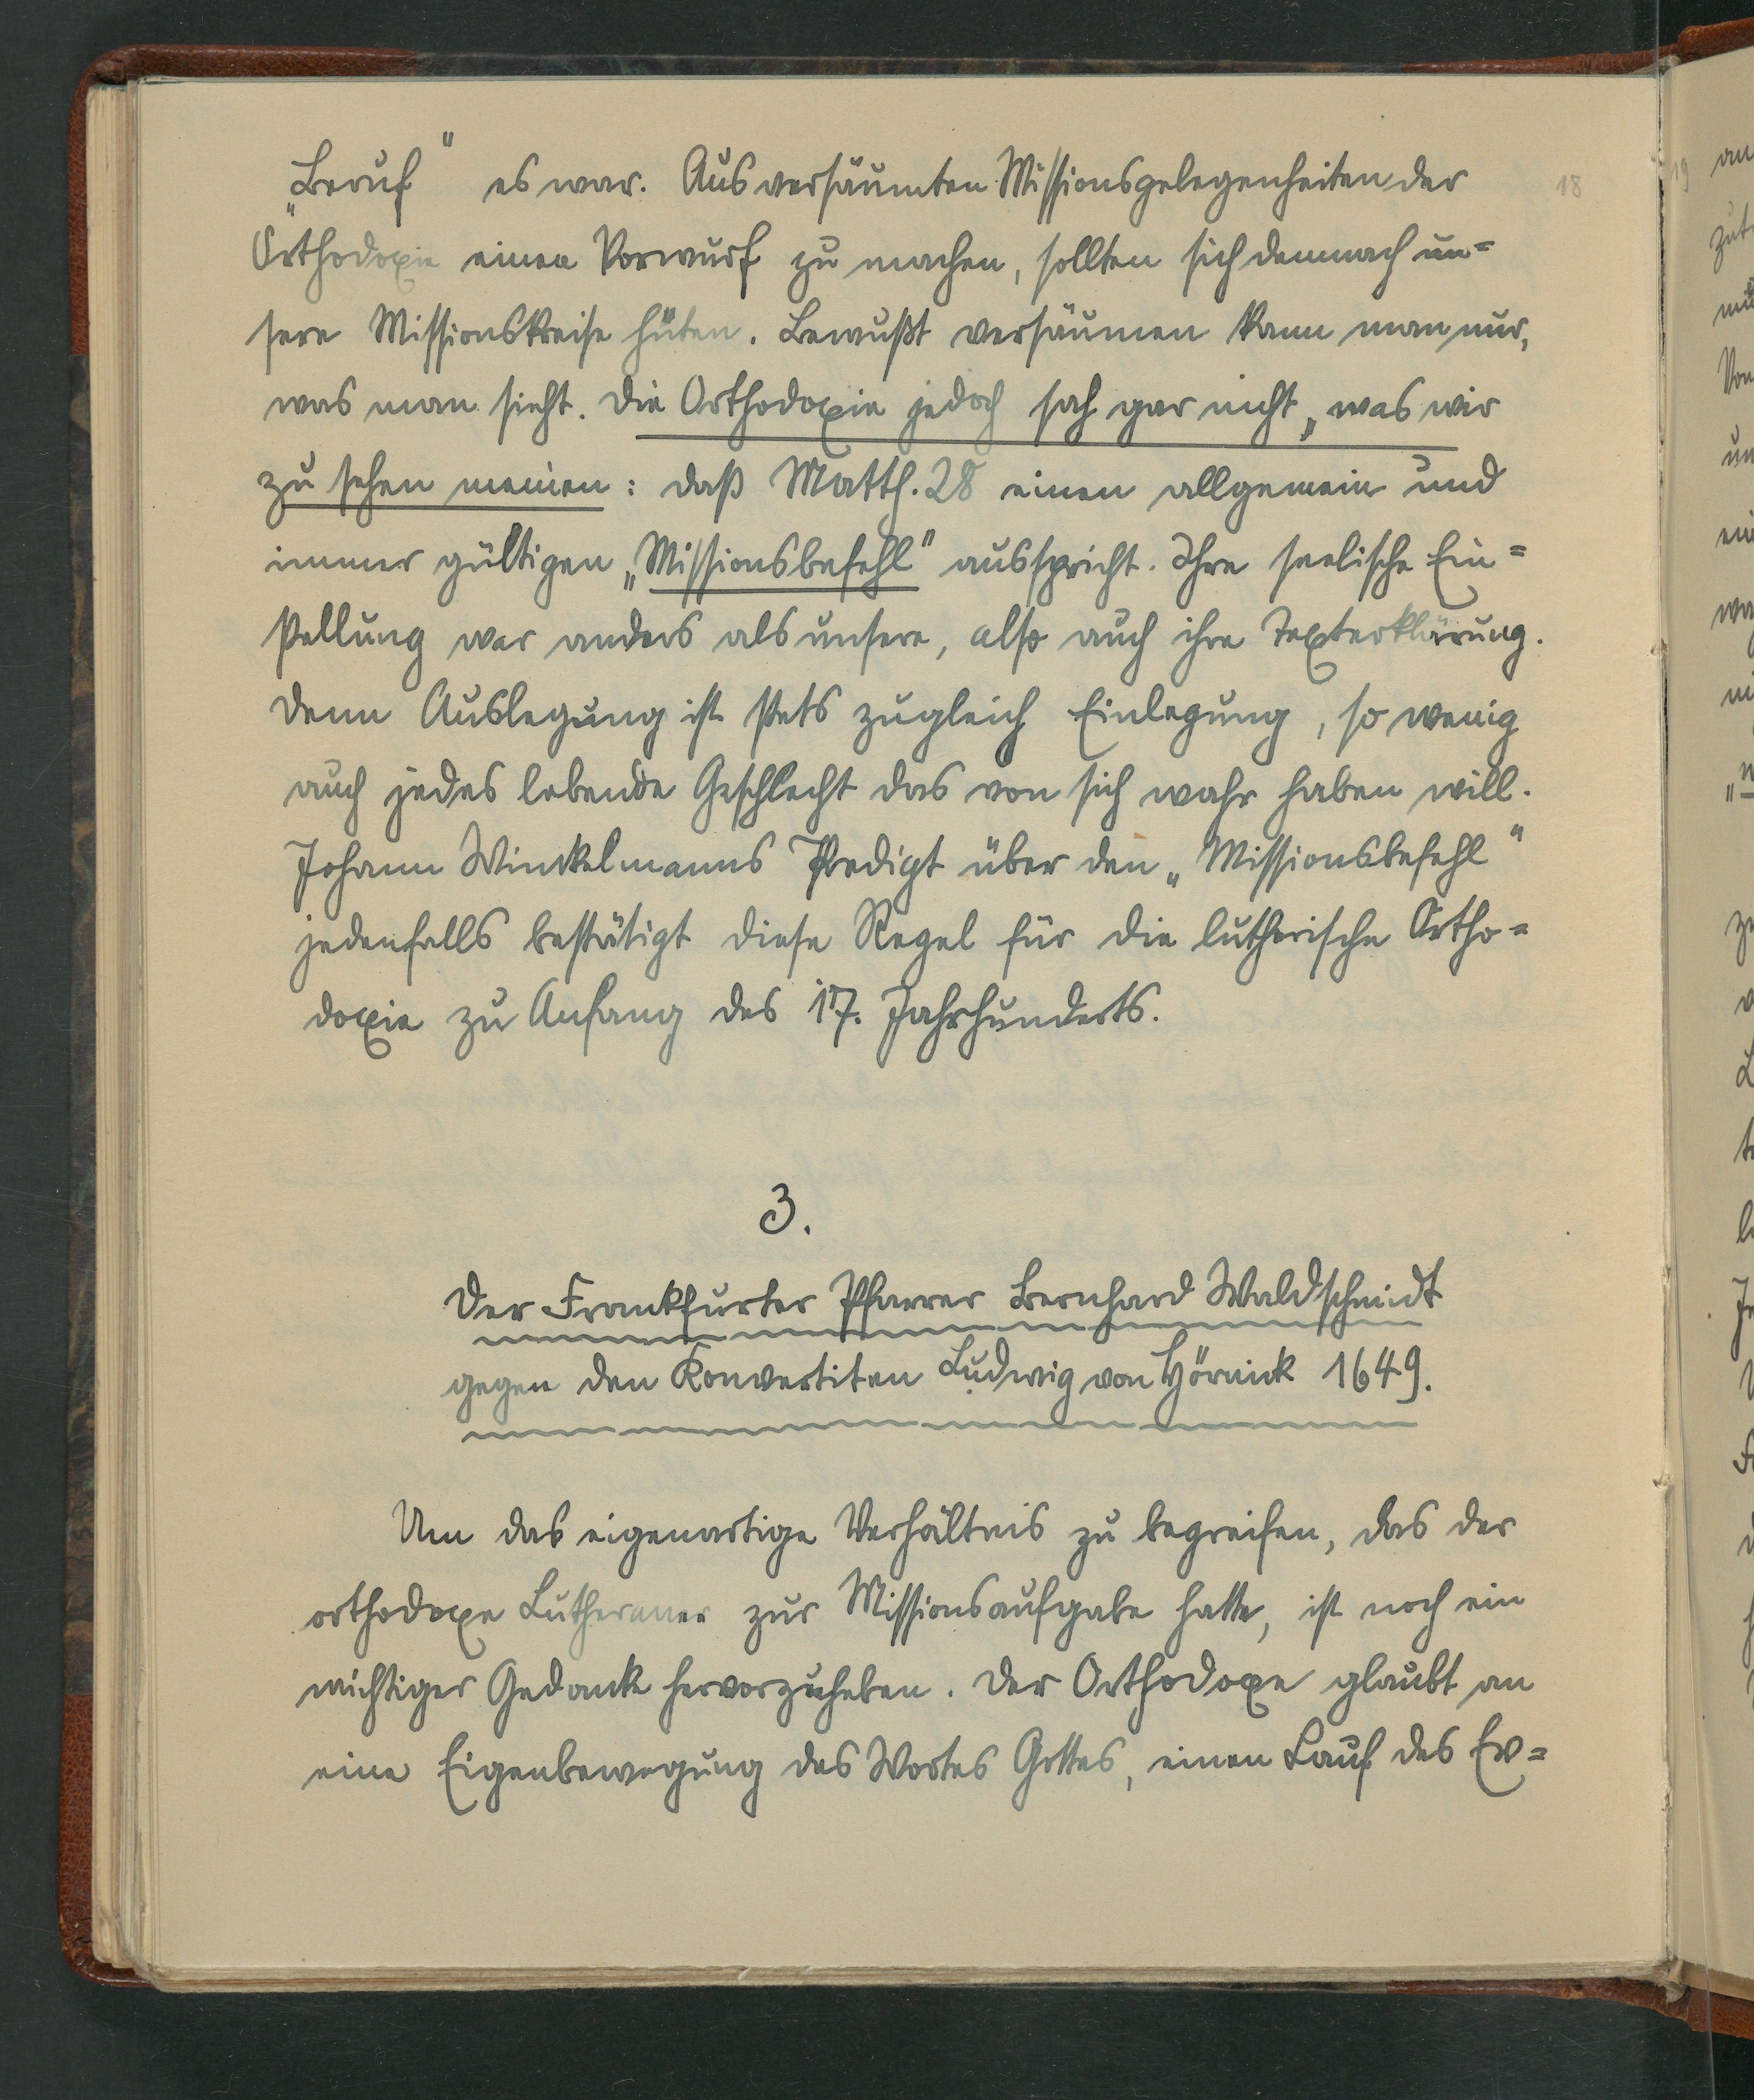 „Beruf“ es war. Aus versäumten Missionsgelegenheiten der
18
Orthodoxie einen Vorwurf zu machen, sollten sich demnach un=
sere Missionskreise hüten. Bewußt versäumen kann man nur,
was man sieht. Die Orthodoxie jedoch sah gar nicht, was wir
zu sehen meinen: daß Matth. 28 einen allgemein und
immer gültigen „Missionsbefehl“ ausspricht. Ihre seelische Ein=
stellung war anders als unsere, also auch ihre Texterklärung.
Denn Auslegung ist stets zugleich Einlegung, so wenig
auch jedes lebende Geschlecht das von sich wahr haben will.
Johann Winckelmanns Predigt über den „Missionsbefehl“
jedenfalls bestätigt diese Regel für die lutherische Ortho=
doxie zu Anfang des 17. Jahrhunderts.
3.
Der Frankfurter Pfarrer Bernhard Waldschmidt
gegen den Konvertiten Ludwig von Hörnick 1649.
Um das eigenartige Verhältnis zu begreifen, das der
orthodoxe Lutheraner zur Missionsaufgabe hatte, ist noch ein
wichtiger Gedanke hervorzuheben. Der Orthodoxe glaubt an
eine Eigenbewegung des Wortes Gottes, einen Lauf des Ev=
19